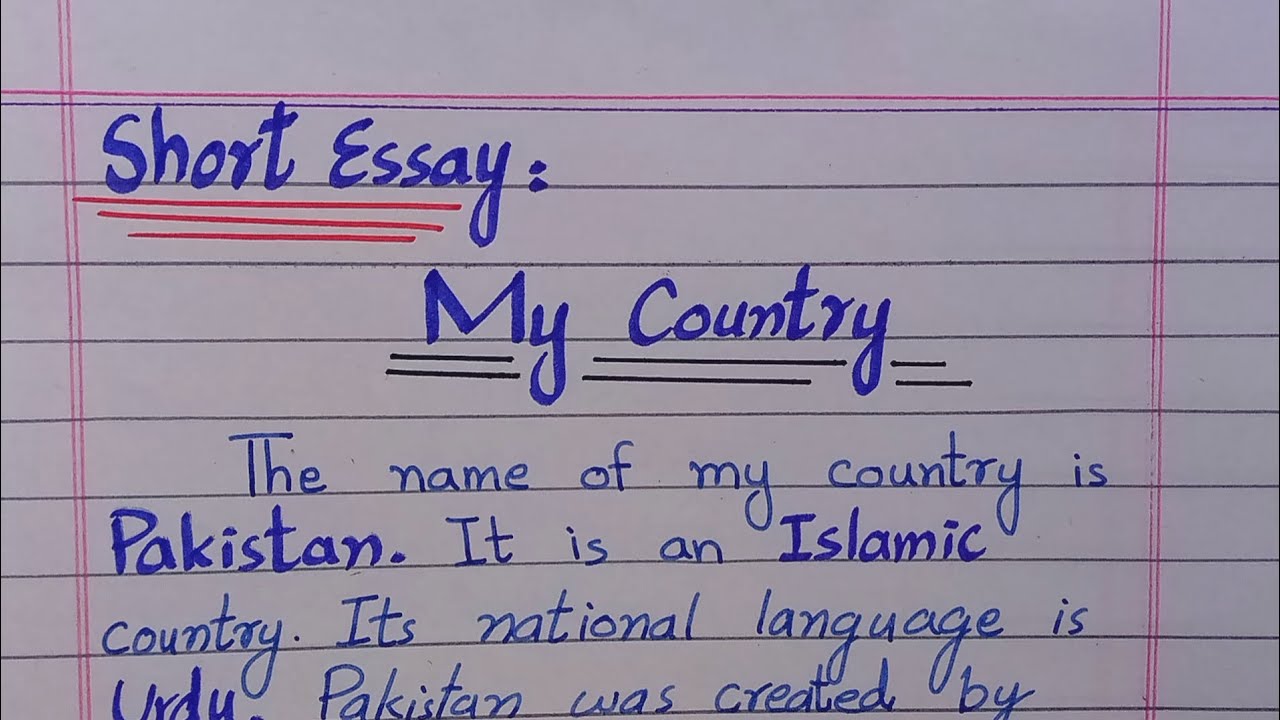 Short Essay:
My Country
The name of my country is
Pakistan. It is an Islamic
country. Its national language is
Urdu. Pakistan was created by